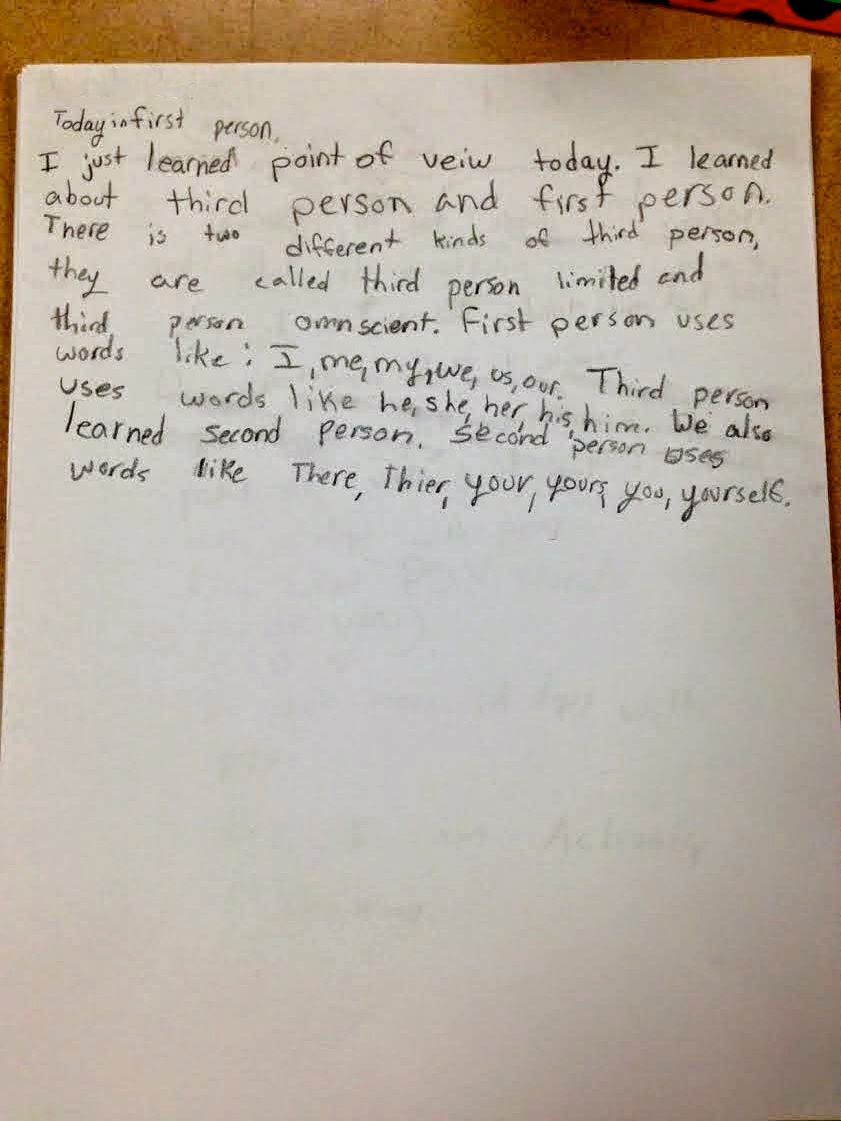 Today in first person.
I just learned point of veiw today. I learned
about third person and first person.
There is two different kinds of third person,
they are called third person limited and
third person omnscient. First person uses
words like: I, me, my, we, us, our. Third person
uses words like he, she, her, his, him. We also
learned second person. Second person uses
words like There, thier, your, yours, you, yourself.